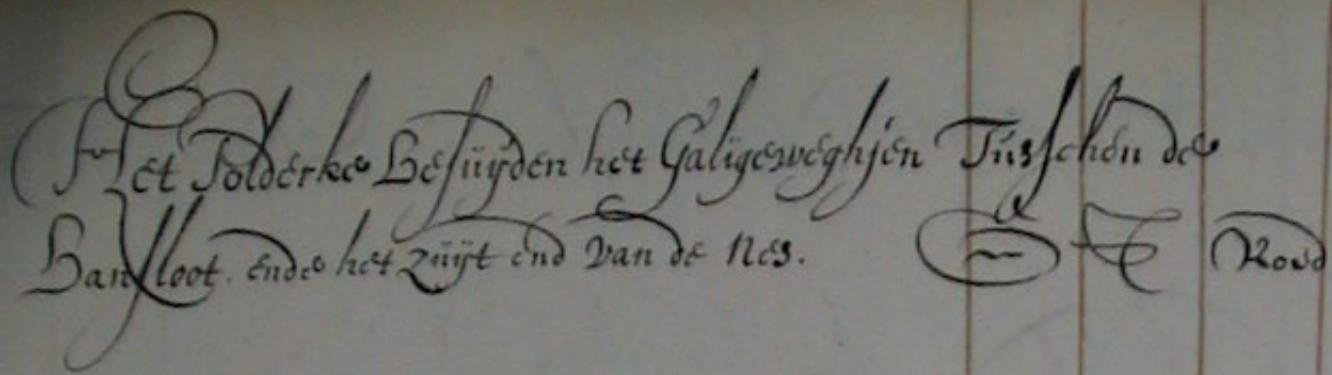 Het Polderke besuÿden het Galigeweghjen Tusschen de
Bansloot. ende het zuijt end van de Nes. Roed